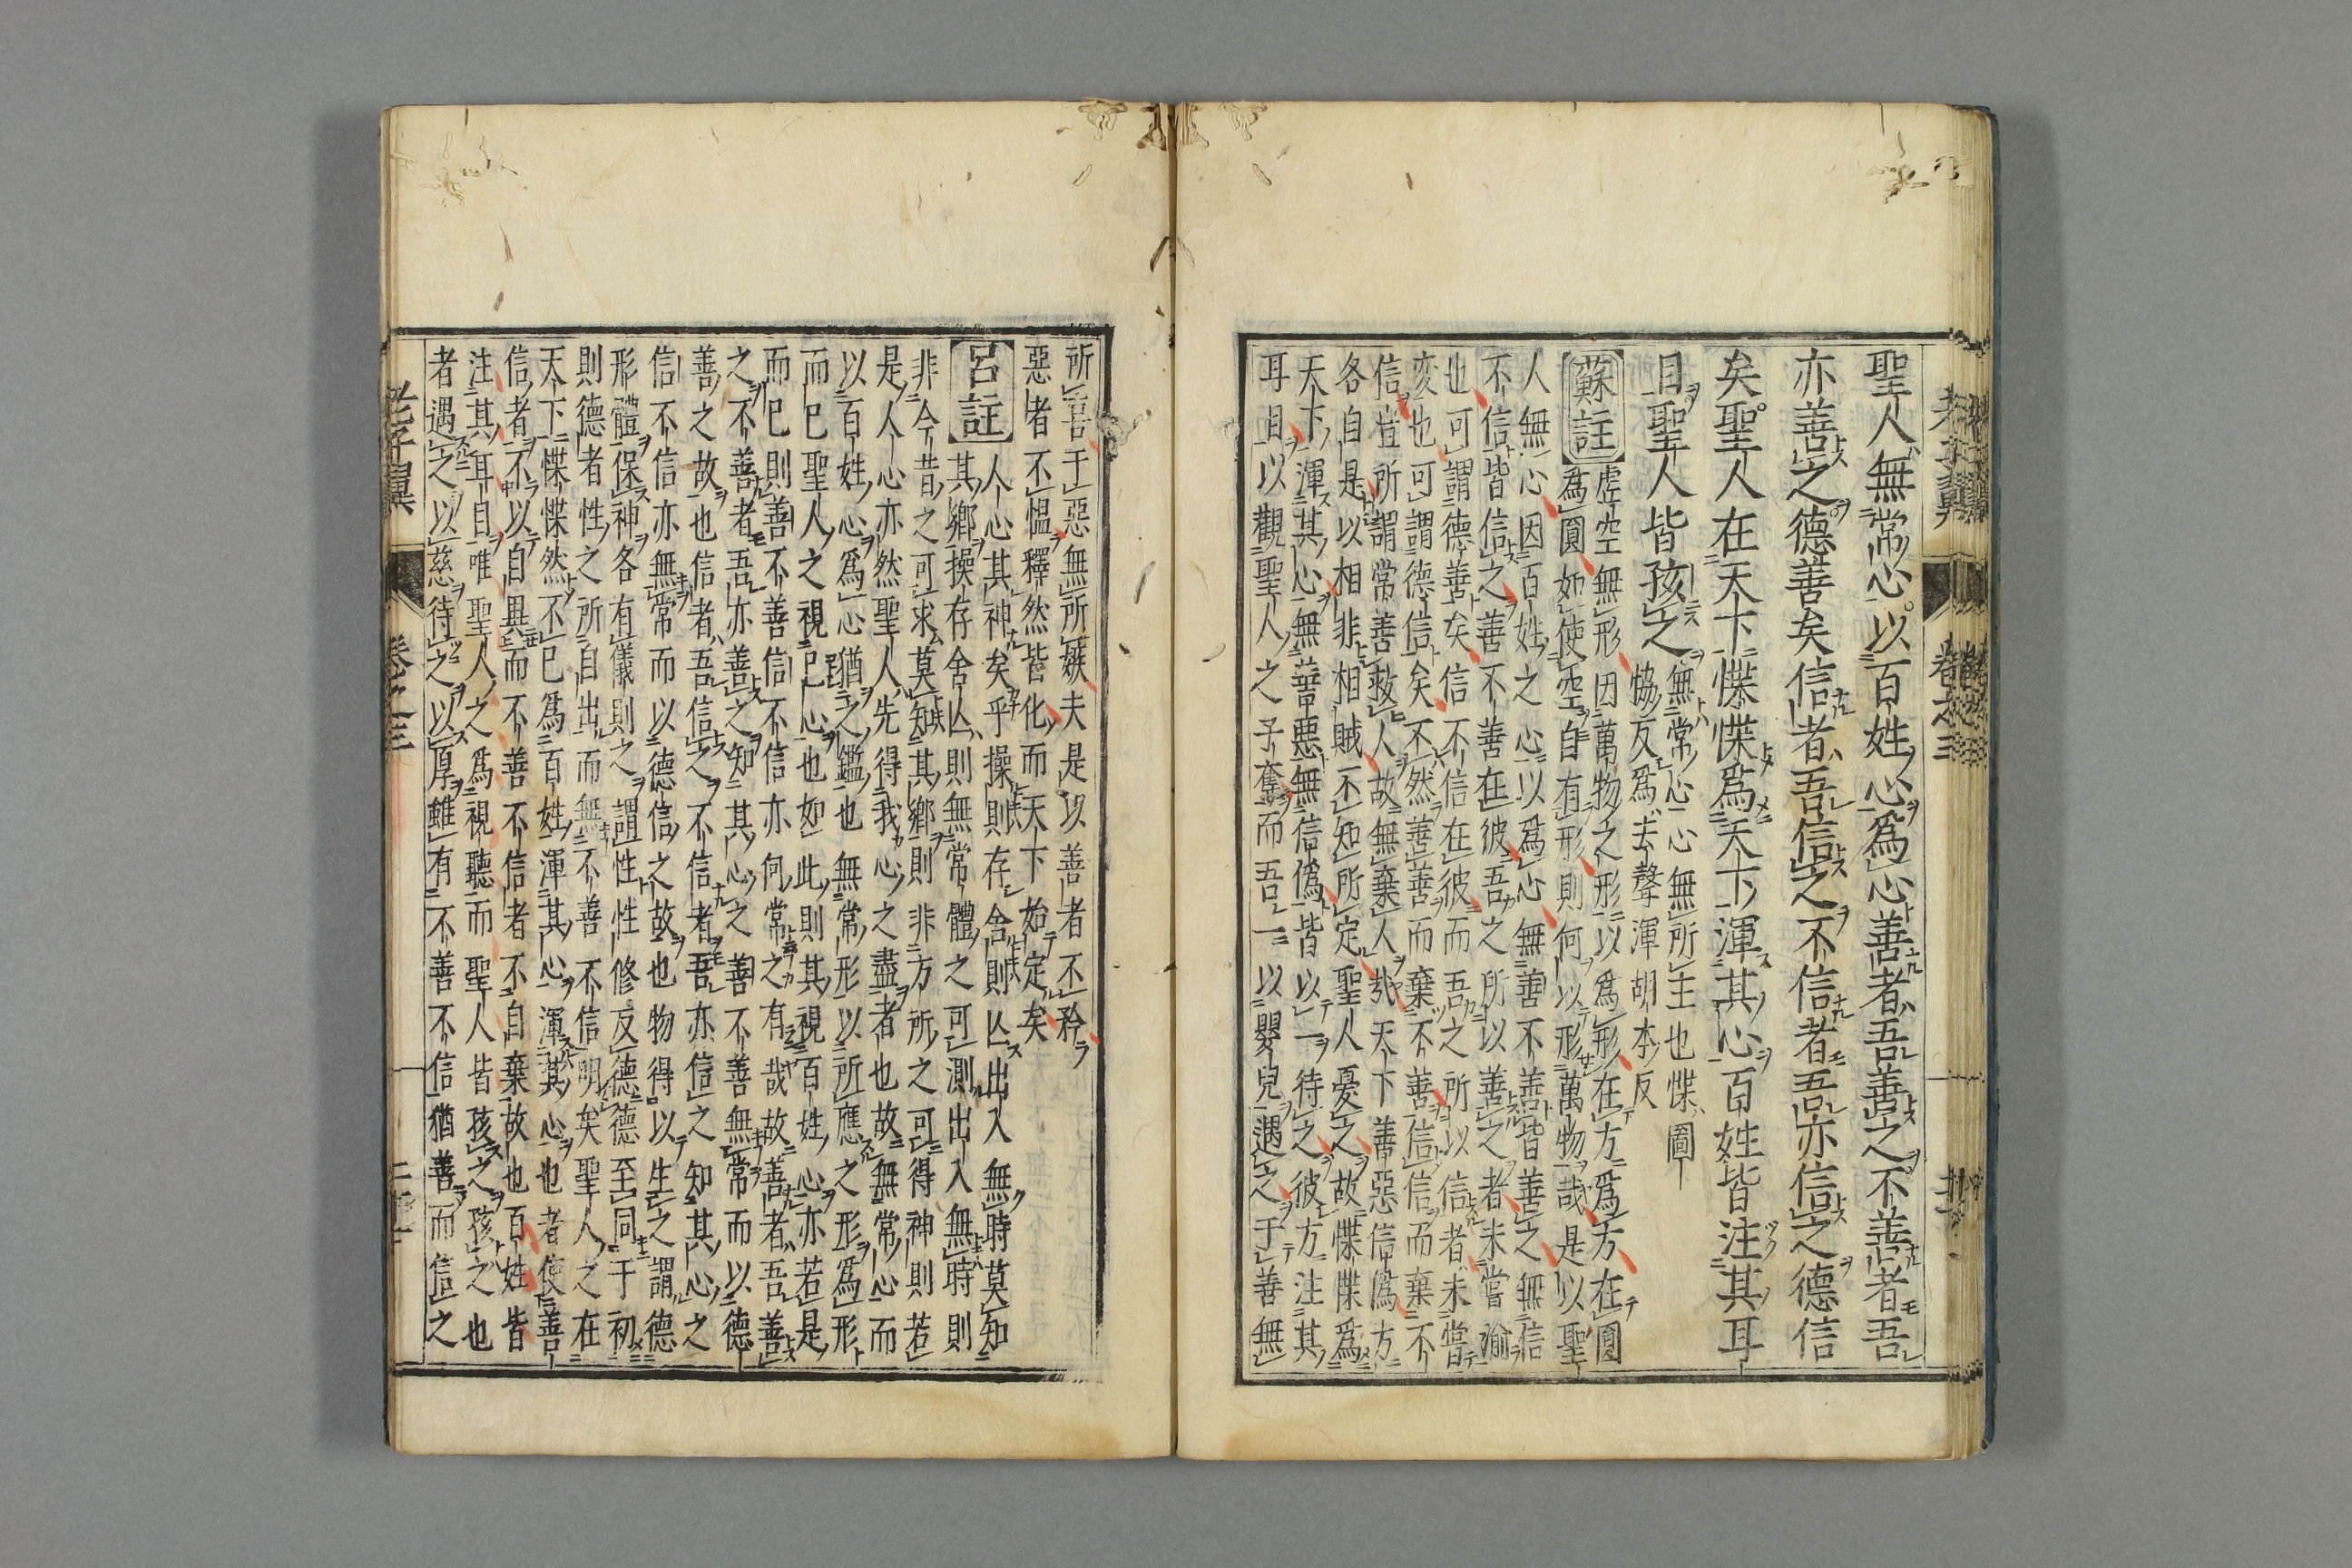 聖人無常心以百姓心爲心善者吾善之不善者吾
亦善之德善矣信者吾信之不信者吾亦信之德信
矣聖人在天下惵惵爲天下渾其心百姓皆注其耳
目聖人皆孩之無常心心無所主也惵啚
恊反爲去聲渾胡本反
蘇註虛空無形因萬物之形以爲形在方爲方在圓
爲圓如使空自有形則何以形萬物哉是以聖
人無心因百姓之心以爲心無善不善皆善之無信
不信皆信之善不善在彼吾之所以善之者未嘗渝
也可謂德善矣信不信在彼而吾之所以信者未嘗
変也可謂德信矣不然善善而棄不善信信而棄不
信豈所謂常善救人故無棄人哉天下善惡信僞方
各自是以相非相賊不知所定聖人憂之故惵惵爲
天下渾其心無善惡無信僞皆以一待之彼方注其
耳目以觀聖人之予奪而吾一以嬰兒遇之于善無
所喜于惡無所嫉夫是以善者不矜
惡者不慍釋然皆化而天下始定矣
呂註人心其神矣乎操則存舍則亾出入無時莫知
其鄉操存舍亾則無常體之可測出入無時則
非今昔之可求莫知其鄉則非方所之可得神則若
是人心亦然聖人先得我心之盡者也故無常心而
以百姓心爲心猶之鑑也無常形以所應之形爲形
而已聖人之視己心也如此則其視百姓心亦若是
而已則善不善信不信亦何常之有哉故善者吾善
之不善者吾亦善之知其心之善不善無常而以德
善之故也信者吾信之不信者吾亦信之知其心之
信不信亦無常而以德信之故也物得以生之謂德
形體保神各有儀則之謂性性修反德德至同于初
則德者性之所自出而無不善不信明矣聖人之在
天下惵惵然不已爲百姓渾其心渾其心也者使善
信者不以自異而不善不信者不自棄故也百姓皆
注其耳目唯聖人之爲視聽而聖人皆孩之孩之也
者遇之以慈待之以厚雖有不善不信猶善而信之